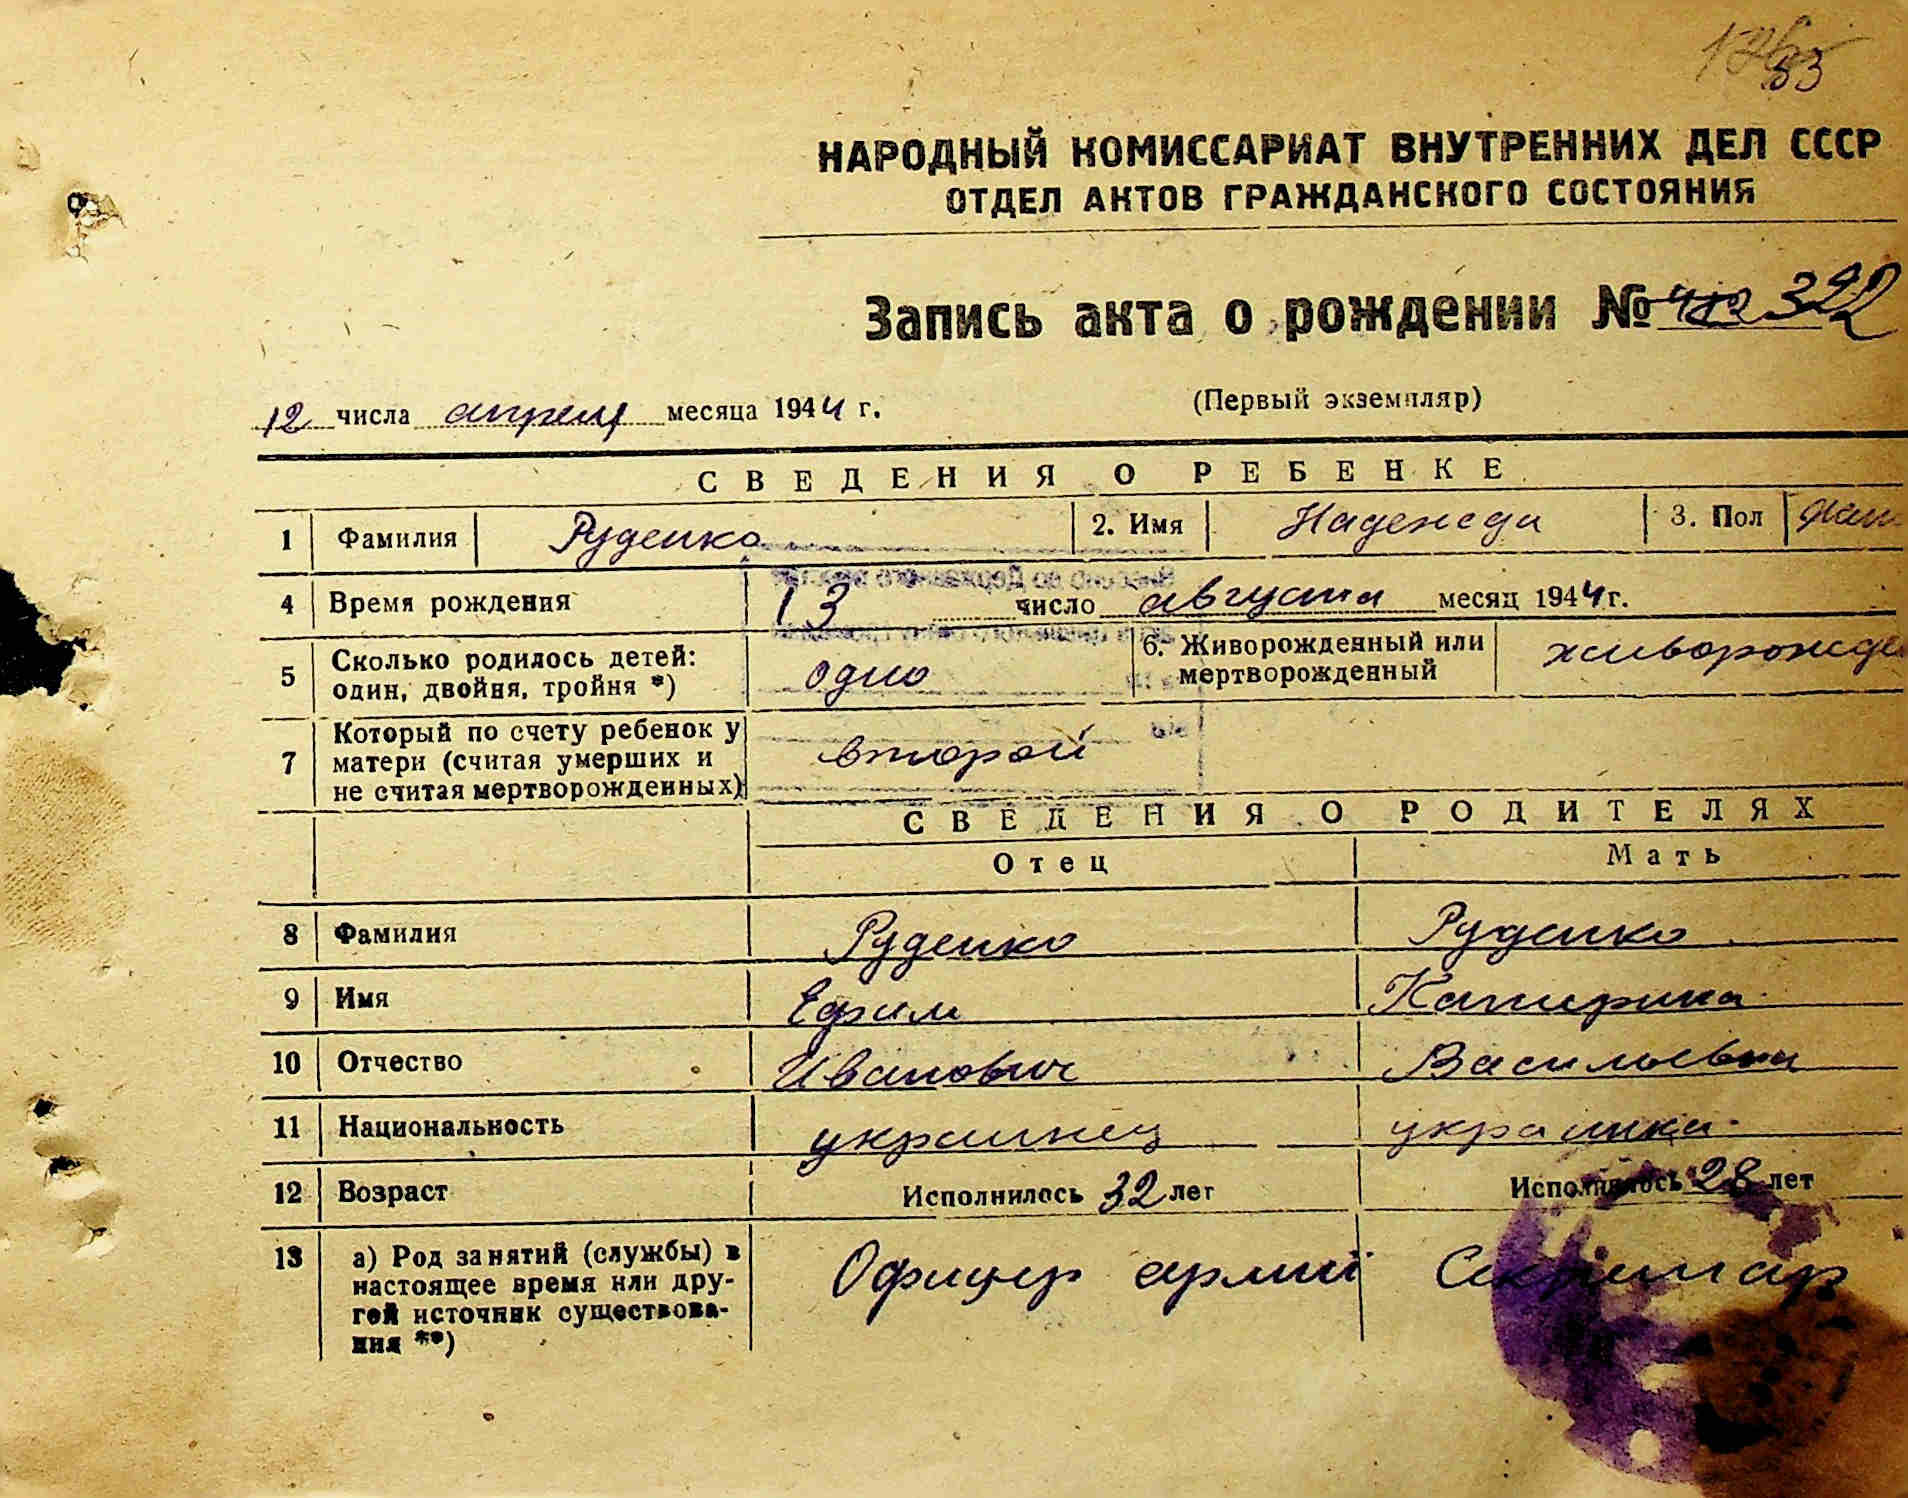 83
НАРОДНЫЙ КОМИССАРИАТ ВНУТРЕННИХ ДЕЛ СССР
ОТДЕЛ АКТОВ ГРАЖДАНСКОГО СОСТОЯНИЯ
Запись акта о рождении № 322
12 числа апреля месяца 1944 г. (Первый экземпляр)
СВЕДЕНИЯ О РЕБЕНКЕ
1 Фамилия Руденко 2. Имя Надежда 3. Пол
4 Время рождения 13 число августа месяц 1944 г.
5 Сколько родилось детей: один, двойня, тройня *) одно 6. Живорожденный или мертворожденный живорожде
7 Который по счету ребенок у матери (считая умерших и не считая мертворожденных) второй
СВЕДЕНИЯ О РОДИТЕЛЯХ
Отец Мать
8 Фамилия Руденко Руденко
9 Имя Ефим Катерина
10 Отчество Иванович Васильевна
11 Национальность украинец украинка
12 Возраст Исполнилось 32 лет Исполнилось 28 лет
13 а) Род занятий (службы) в настоящее время или дру-
гой источник существова-
ния **) Офицер армии Секретар